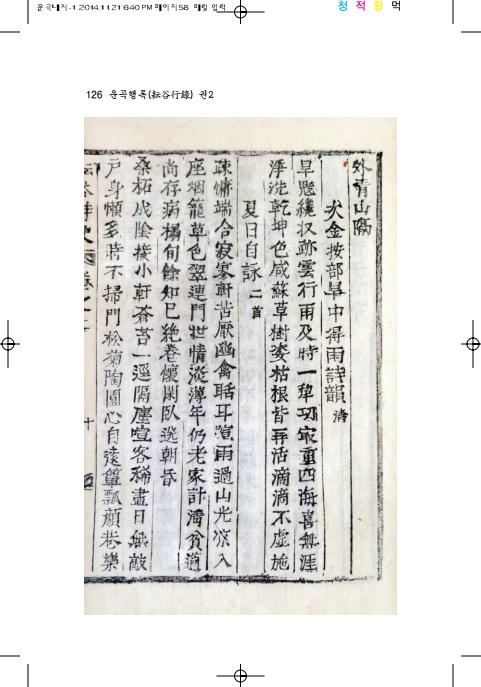 운곡내지-1 2014.11.21 6:40 PM 페이지58 매일 입력
청 적 황 먹
126 운곡행록(耘谷行錄) 권2
外青山隔
次金按部旱中得雨詩韻
旱魃纔收跡雲行雨及時一犂功寂重四海喜無涯
淨洗乾坤色咸蘇草樹姿枯根皆再活滴滴不虛施
夏日自詠 二首
疎慵端合寂寥軒苦厭幽禽聒耳喧雨過山光濃入
座烟籠草色翠連門世情漸薄年仍老家計清貧道
尚存病榻旬餘知己絶卷懷閑臥送朝昏
桑柘成陰擁小軒蒼苔一逕隔塵喧客稀盡日無敲
戶身懶多時不掃門松菊陶園心自遠簞瓢顔巷樂